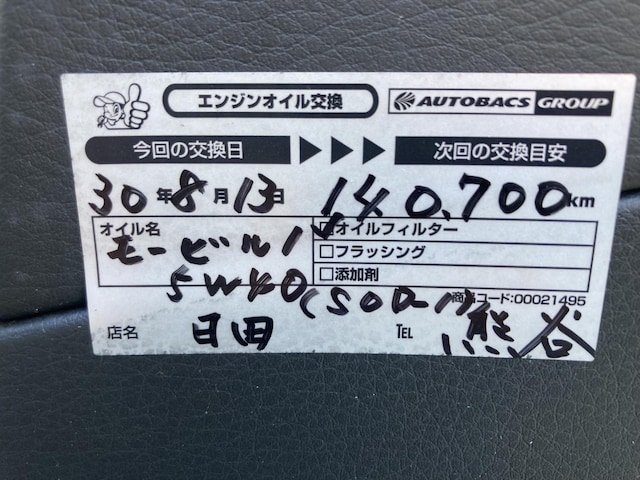 エンジンオイル交換
AUTOBACS GROUP
今回の交換日 次回の交換目安
30年8月13日 140,700km
オイル名 オイルフィルター
モービル1 □フラッシング
5W40 □添加剤
(SOD-1)
商品コード:00021495
店名 日田 TEL 熊谷